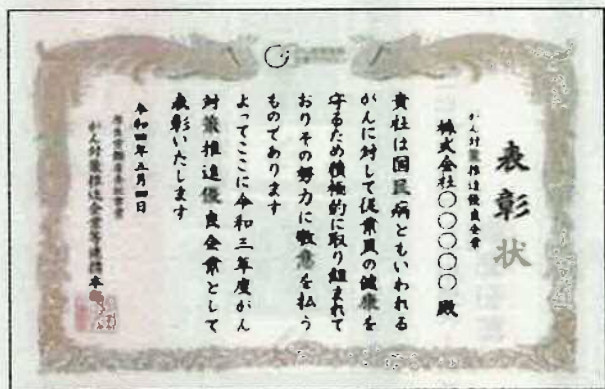 表彰状
がん対策推進優良企業
株式会社〇〇〇〇〇 殿
貴社は国民病ともいわれる
がんに対して従業員の健康を
守るため積極的に取り組まれて
おりその努力に敬意を払う
ものであります
よってここに令和三年度がん
対策推進優良企業として
表彰いたします
令和四年五月四日
厚生労働省委託事業
がん対策推進企業等連携事